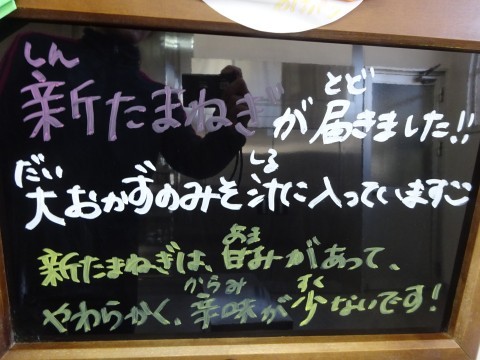 しん とど
新たまねぎが届きました!!
だい しる
大おかずのみそ汁に入っていますこ
あま
新たまねぎは、甘みがあって、
からみ すく
やわらかく、辛味が少ないです！